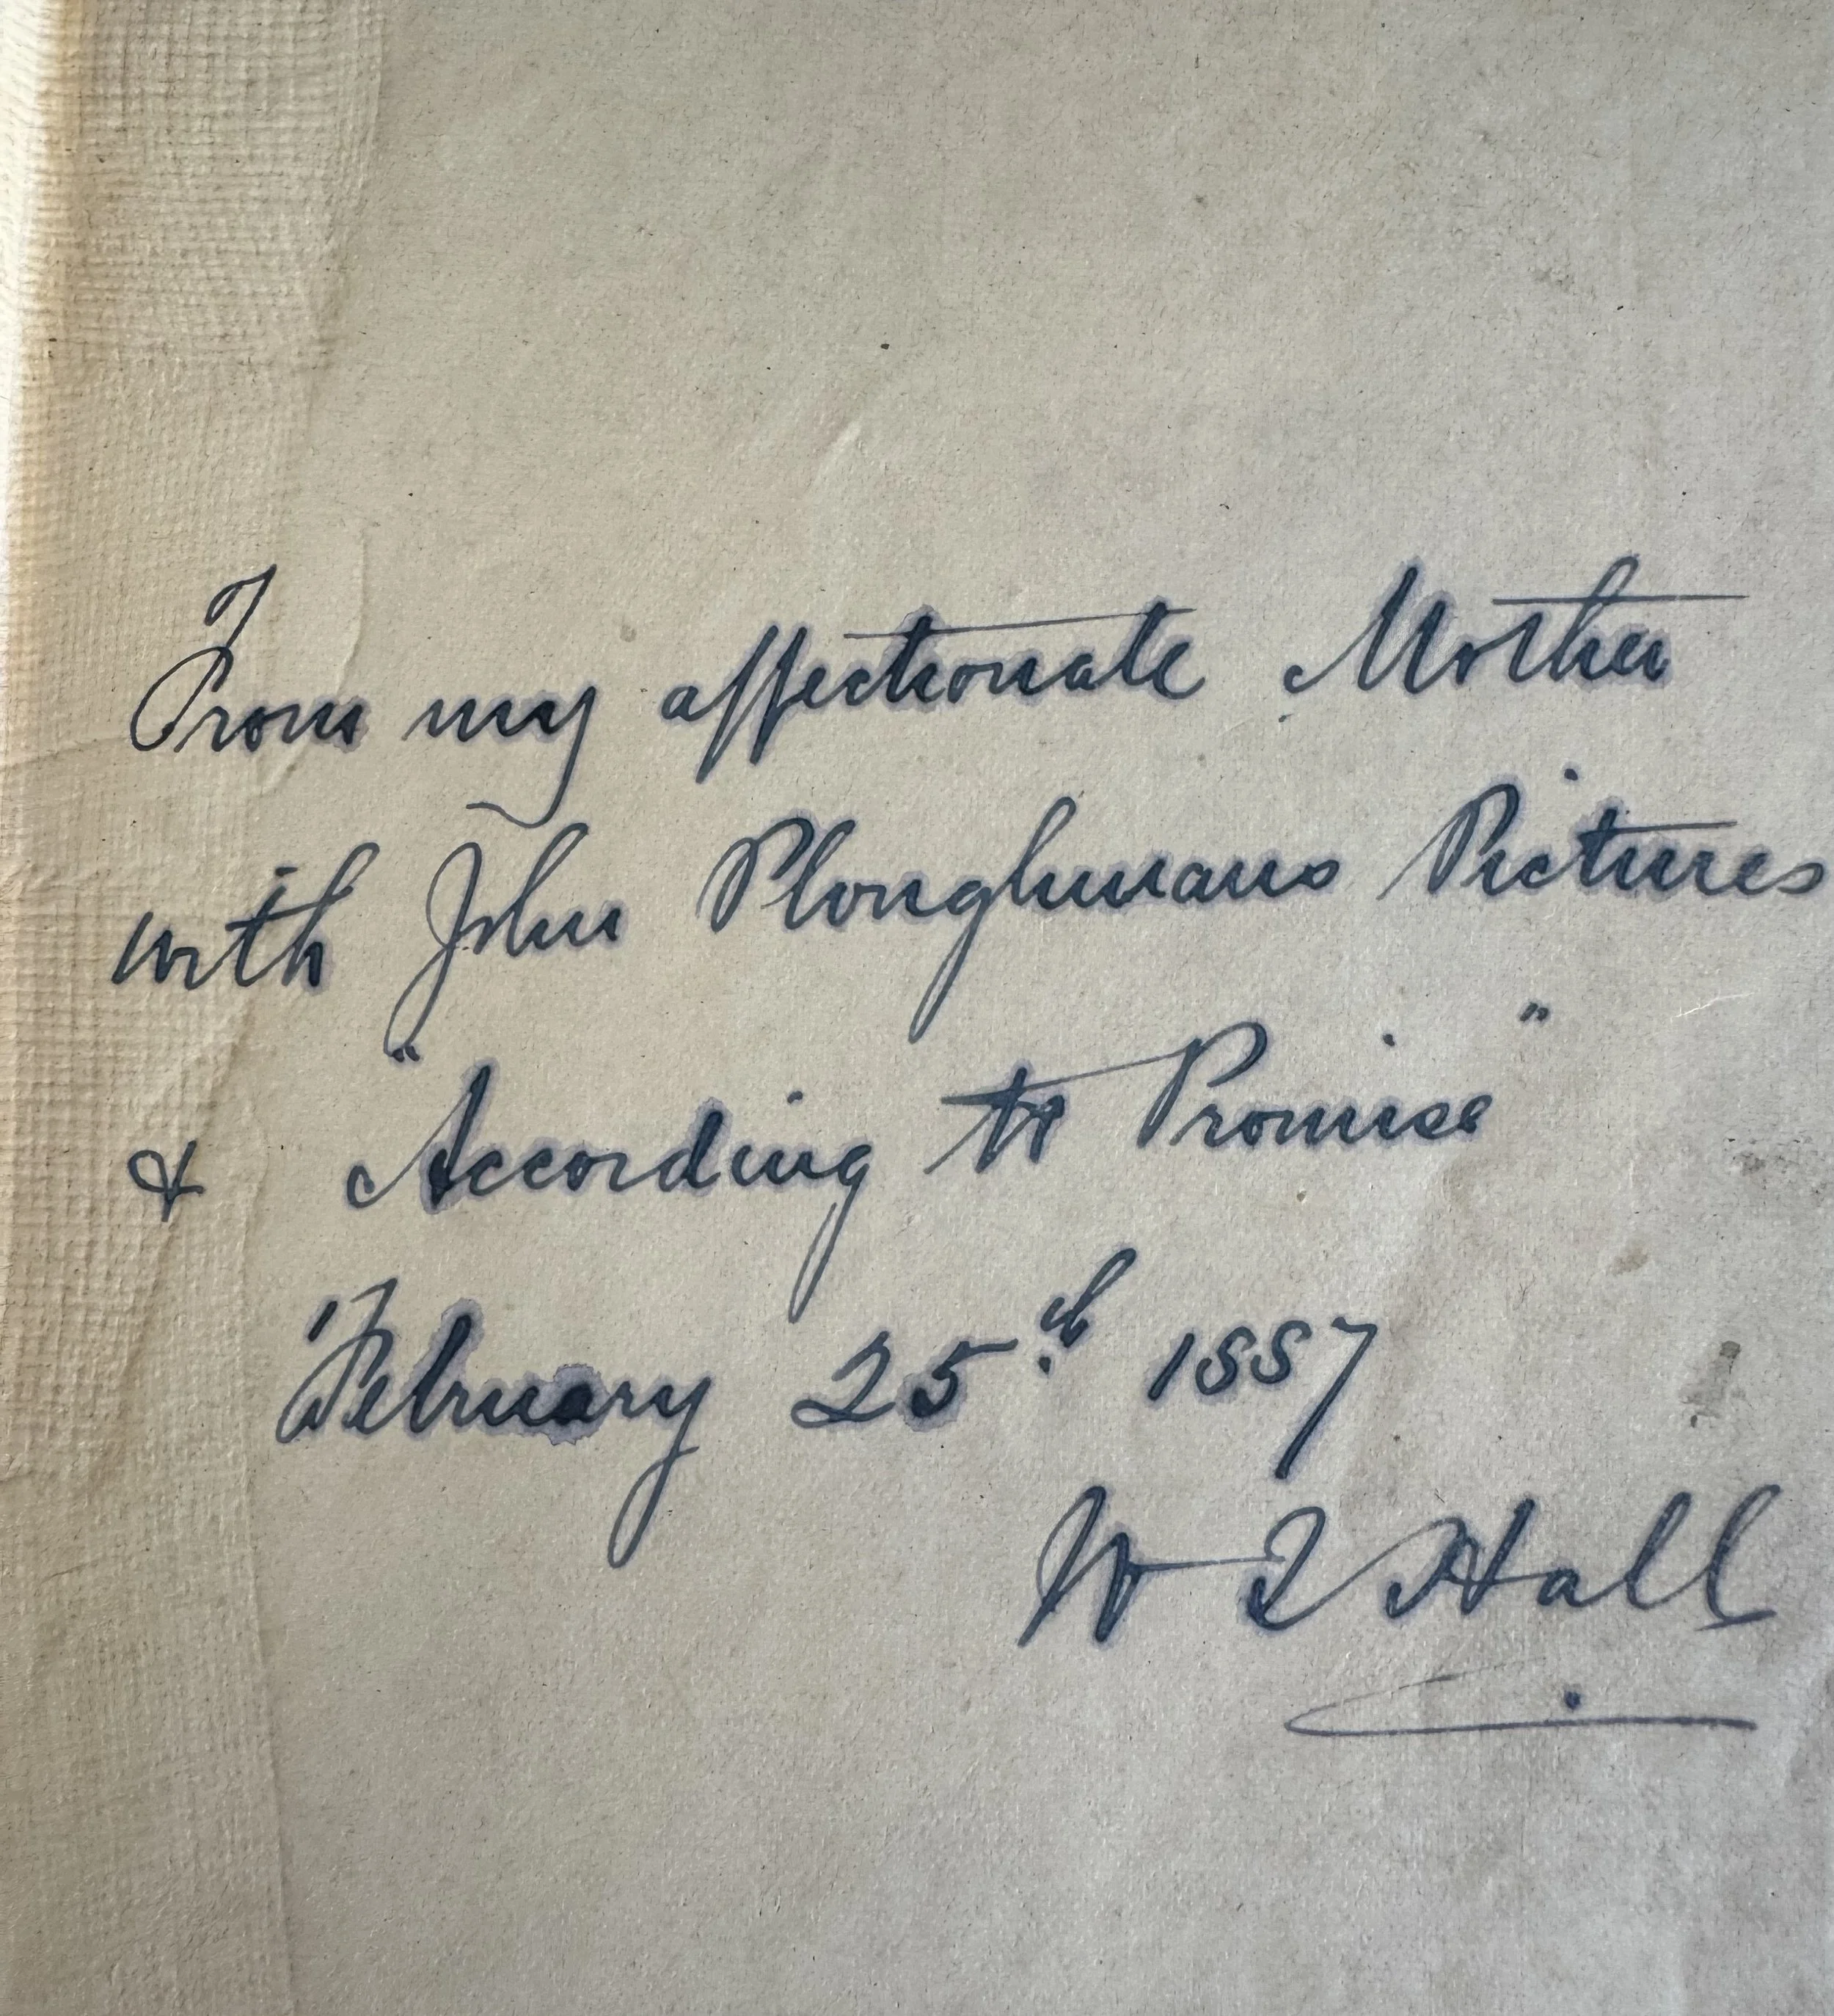 From my affectionate Mother
with John Ploughmans Pictures
& "According to Promise"
February 25th 1887
W Hall